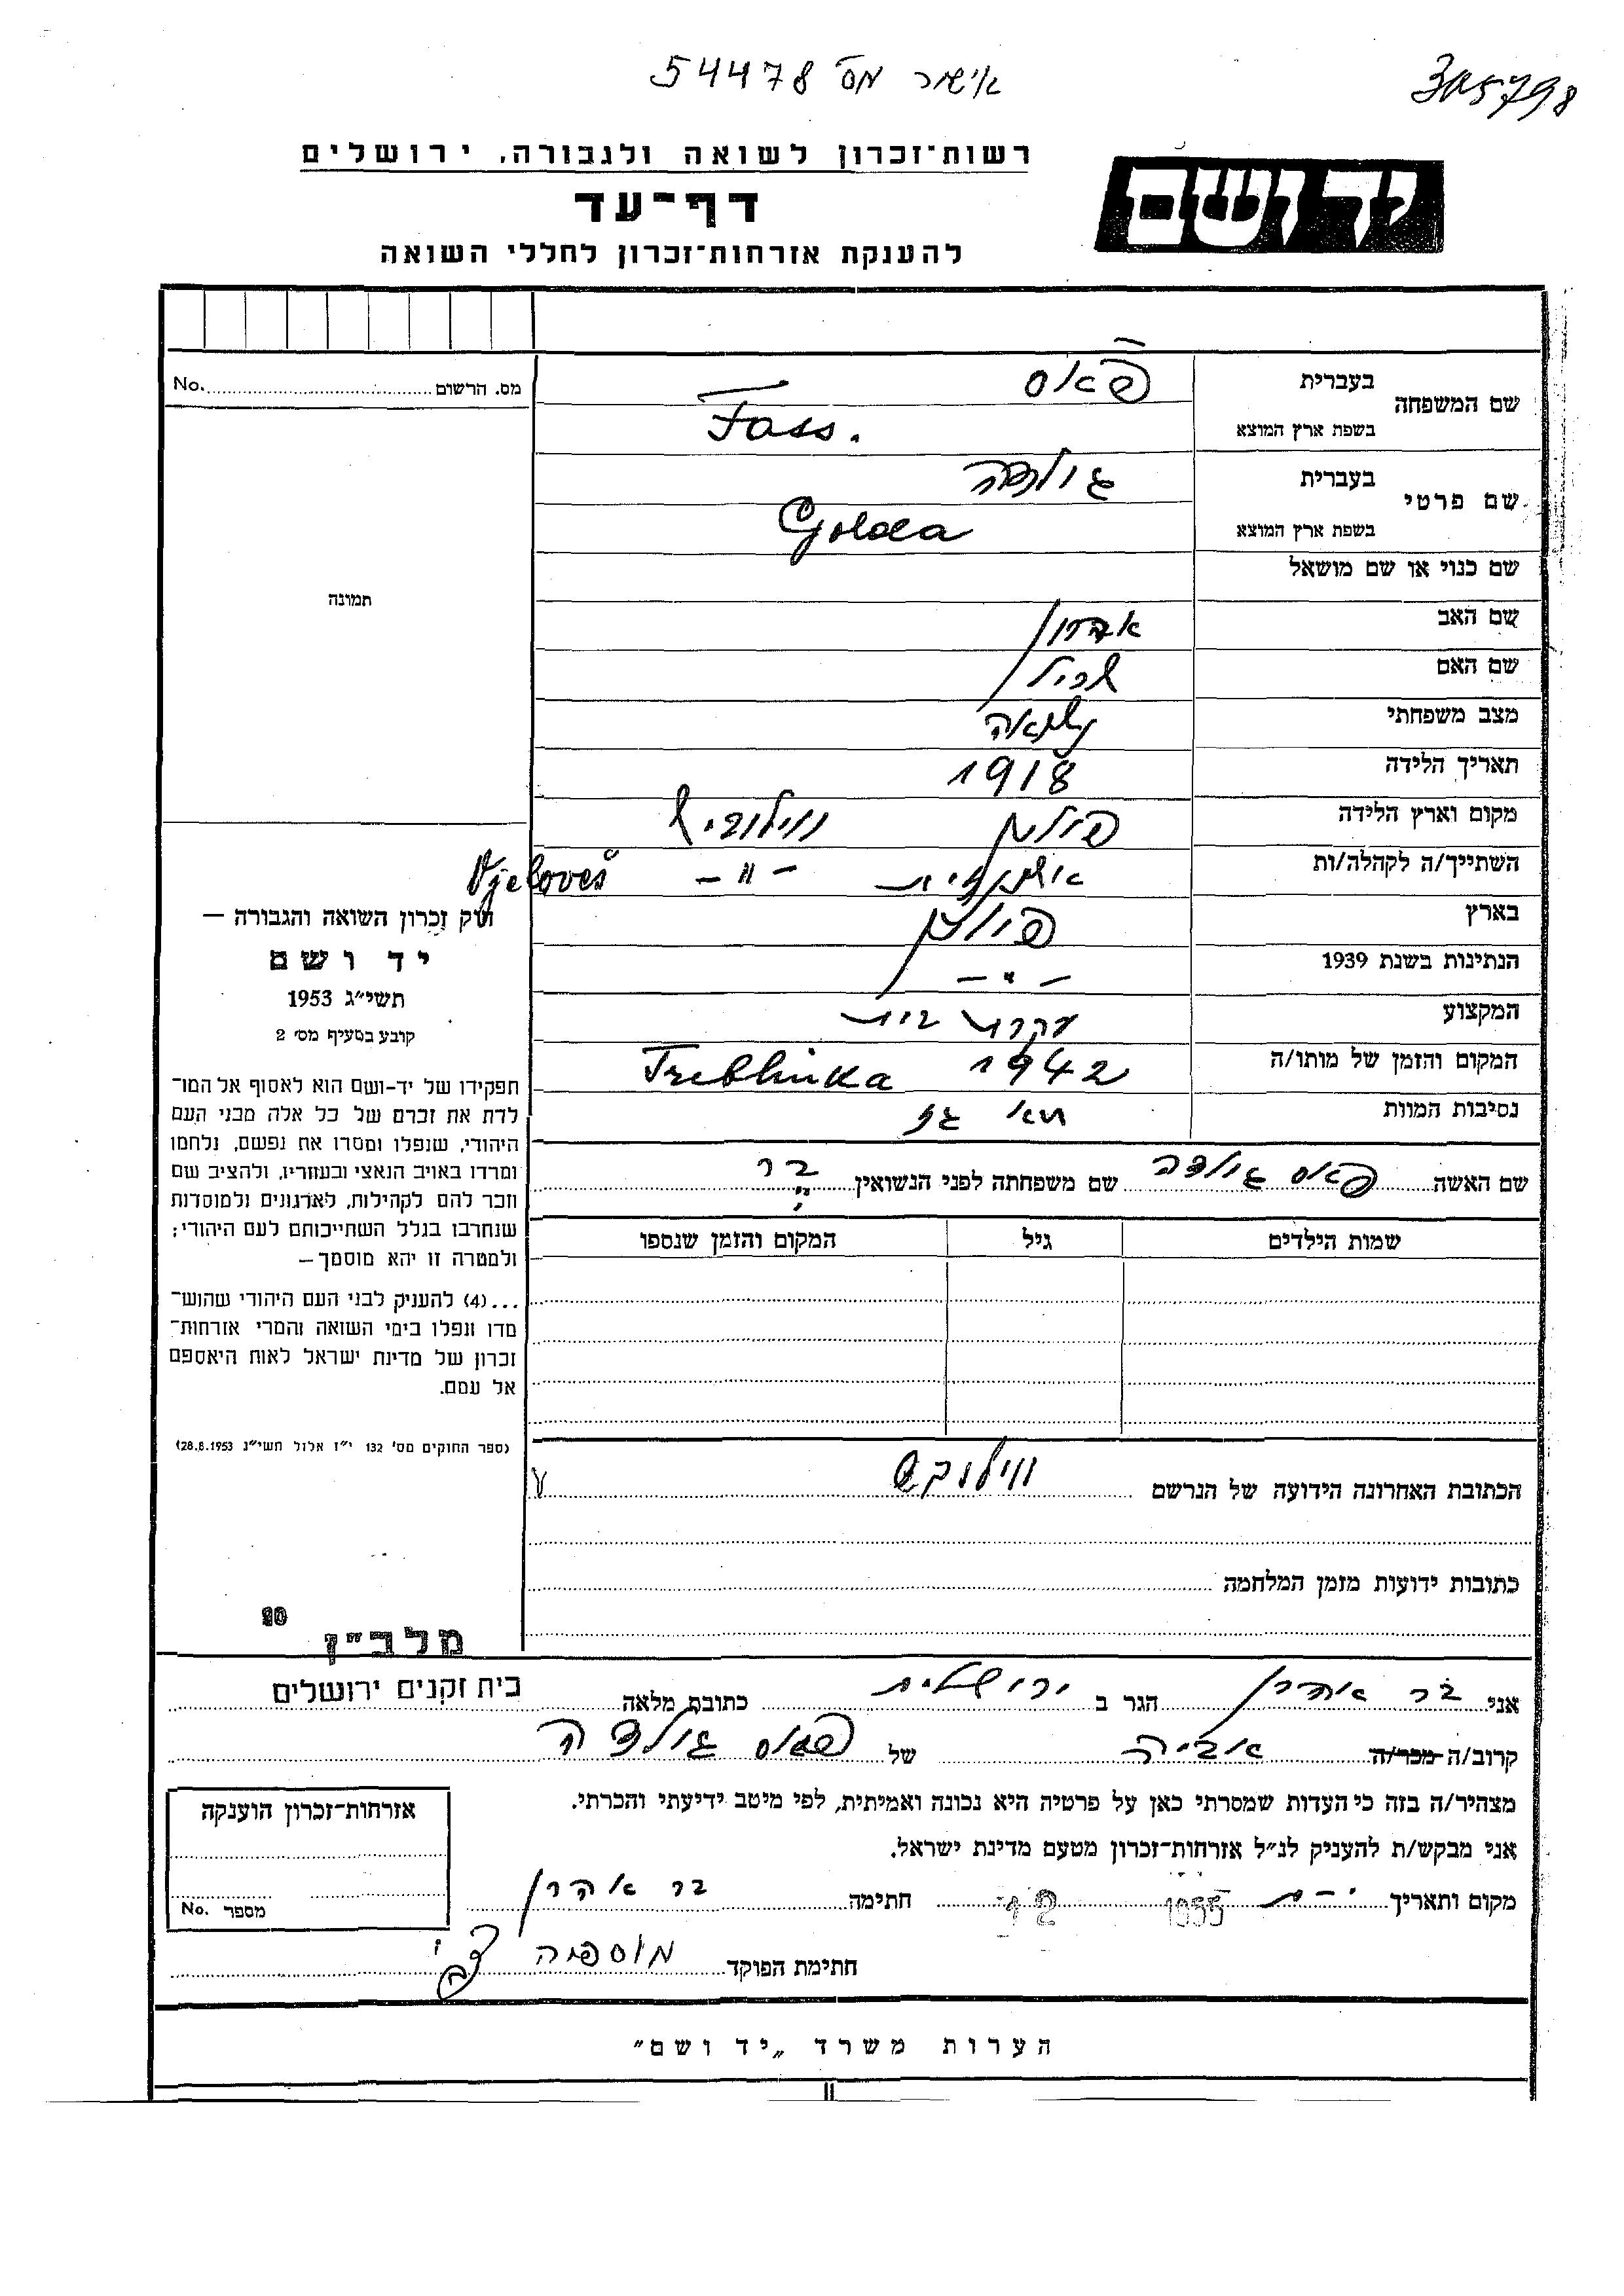 אישור מס' 54478
305798
רשות־זכרון לשואה ולגבורה, ירושלים
יד ושם
דף־עד
להענקת אזרחות־זכרון לחללי השואה
מס. הרשום No.
תמונה
שם המשפחה
בעברית פאס
בשפת ארץ המוצא Fass.
שם פרטי
בעברית גולדה
בשפת ארץ המוצא Golda
שם כנוי או שם מושאל
שם האב אהרון
שם האם
מצב משפחתי נשואה
תאריך הלידה 1918
מקום וארץ הלידה פולין
השתייך/ה לקהלה/ות — " —
בארץ פולין
הנתינות בשנת 1939 — " —
המקצוע עקרת בית
המקום והזמן של מותו/ה 1942 Treblinka
נסיבות המוות תאי גז
שם האשה פאס גולדה שם משפחתה לפני הנשואין בר
שמות הילדים גיל המקום והזמן שנספו
הכתובת האחרונה הידועה של הנרשם
כתובות ידועות מזמן המלחמה
חוק זכרון השואה והגבורה —
יד ושם
תשי"ג 1953
קובע בסעיף מס' 2
תפקידו של יד-ושם הוא לאסוף אל המו־
לדת את זכרם של כל אלה מבני העם
היהודי, שנפלו ומסרו את נפשם, נלחמו
ומרדו באויב הנאצי ובעוזריו, ולהציב שם
וזכר להם לקהילות, לארגונים ולמוסדות
שנחרבו בגלל השתייכותם לעם היהודי;
ולמטרה זו יהא מוסמך—
...(4) להעניק לבני העם היהודי שהוש־
מדו ונפלו בימי השואה והמרי אזרחות־
זכרון של מדינת ישראל לאות היאספם
אל עמם.
(ספר החוקים מס' 132 י"ז אלול תשי"ג 28.8.1953)
מלב"ן
אני בר אהרן הגר ב ירושלים כתובת מלאה בית זקנים ירושלים
קרוב/ה מכר/ה אביה של פאס גולדה
מצהיר/ה בזה כי העדות שמסרתי כאן על פרטיה היא נכונה ואמיתית, לפי מיטב ידיעתי והכרתי.
אני מבקש/ת להעניק לנ"ל אזרחות־זכרון מטעם מדינת ישראל.
מקום ותאריך י-ם 1955 חתימה בר אהרן
חתימת הפוקד
אזרחות־זכרון הוענקה
מספר No.
הערות משרד „יד ושם"